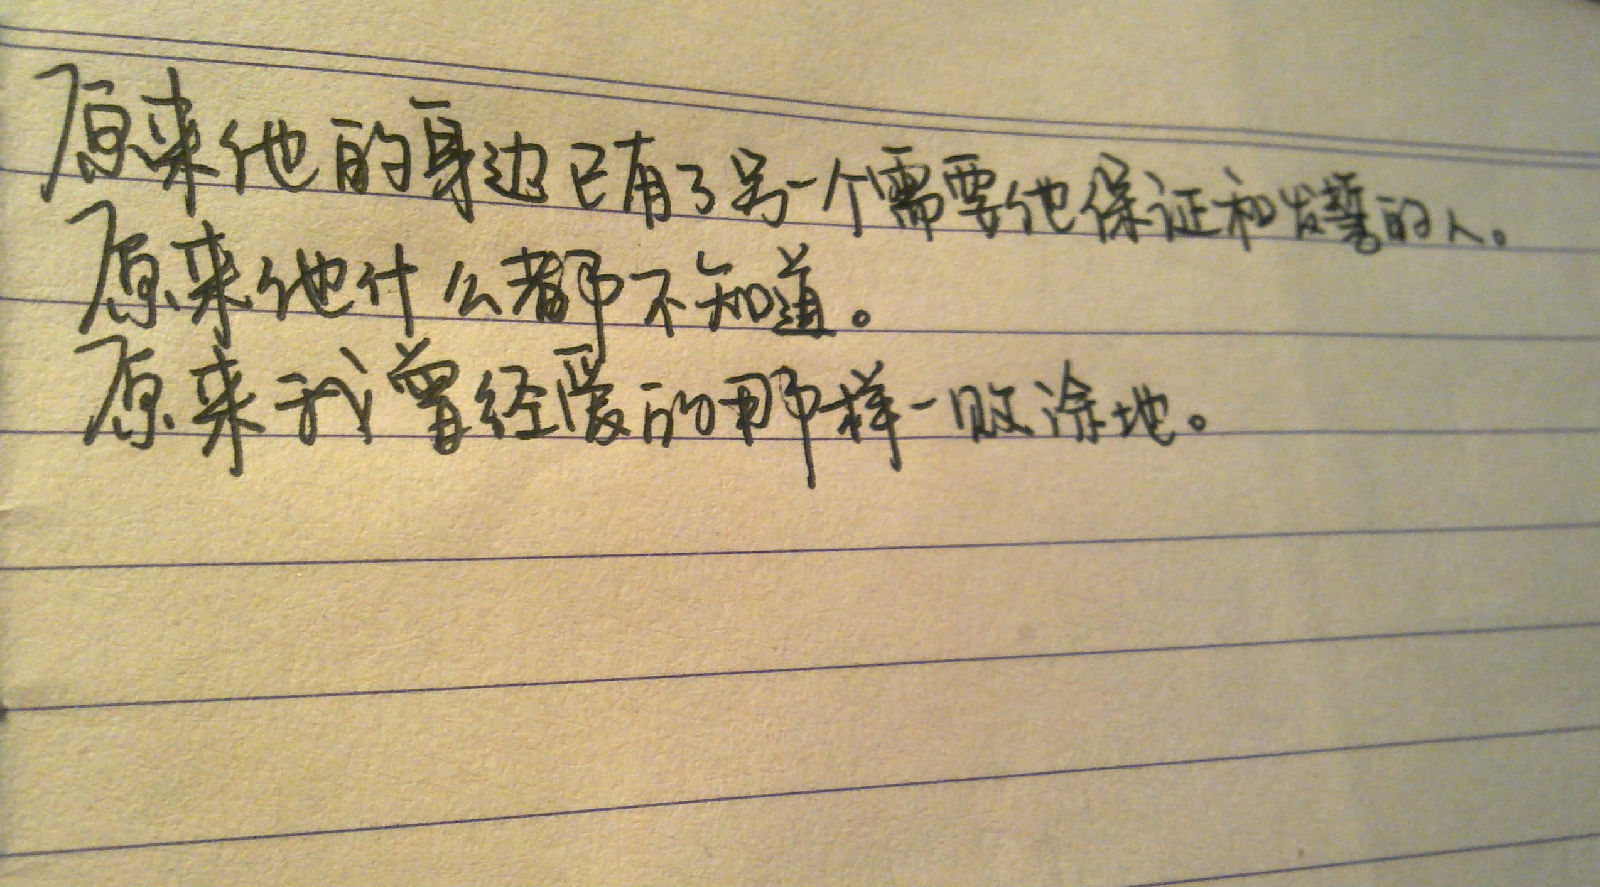 原来他的身边已有了另一个需要他保证和发誓的人。
原来他什么都不知道。
原来我曾经爱的那样一败涂地。